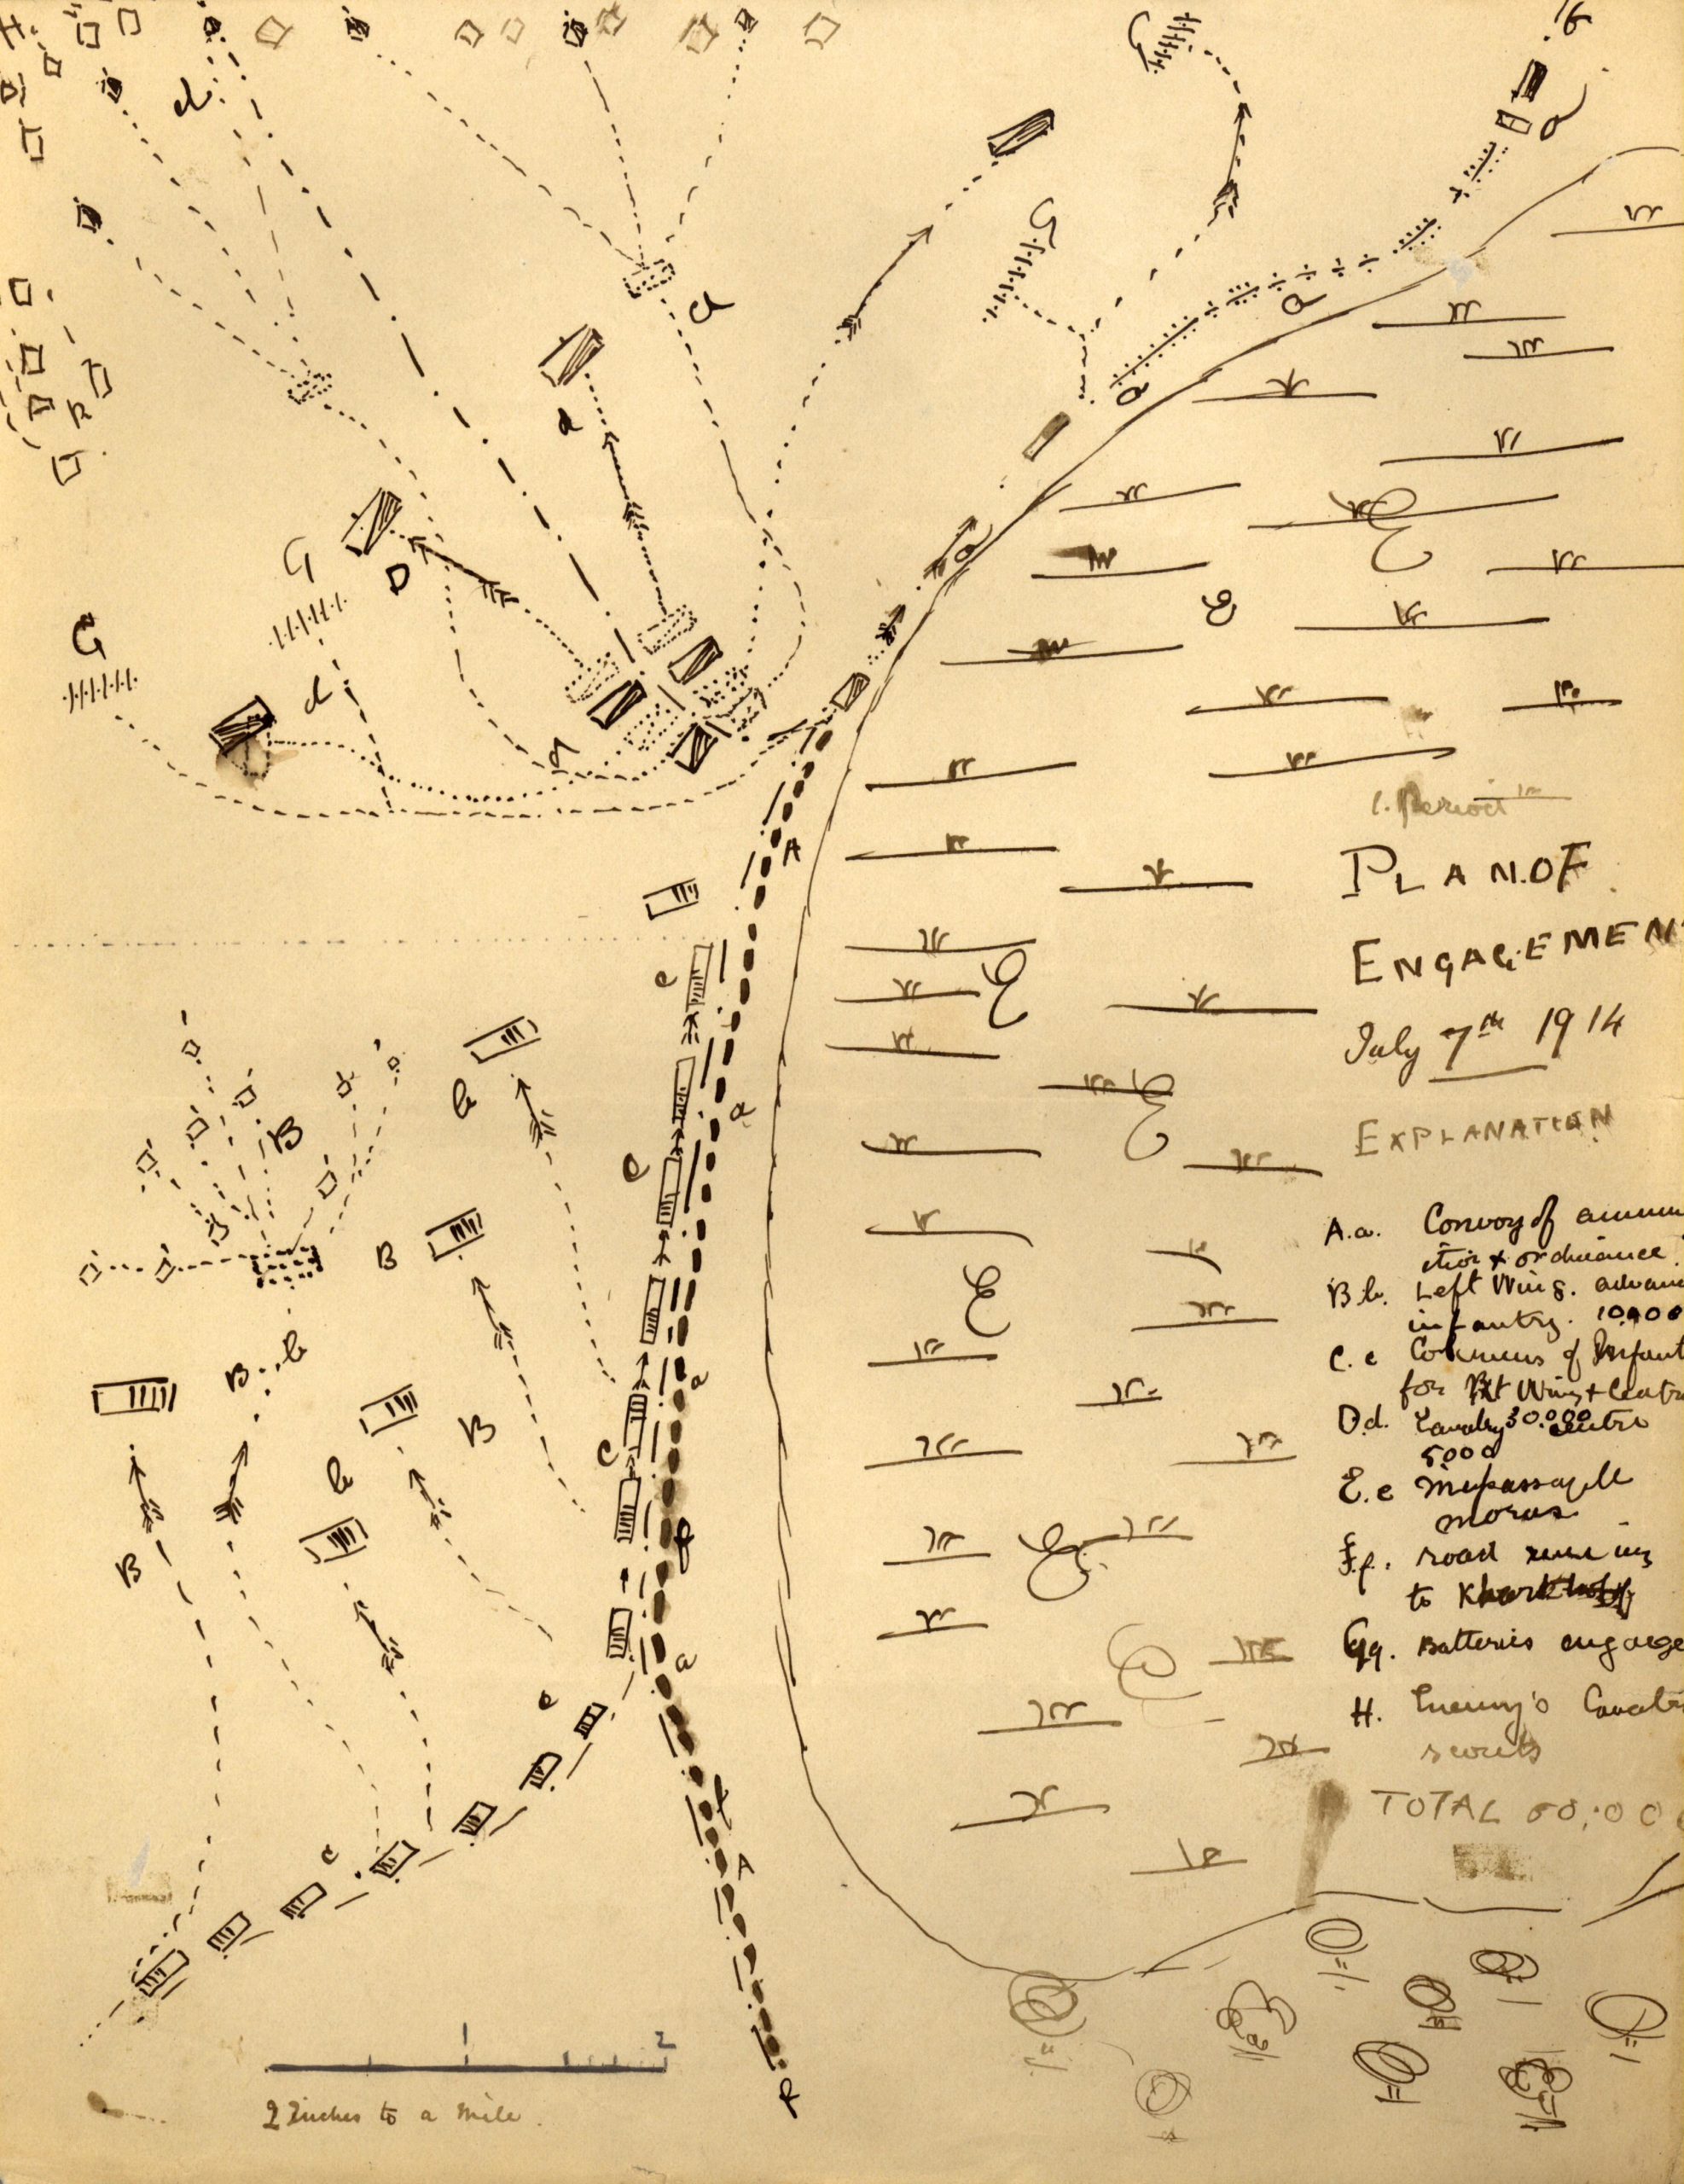 1. Period
PLAN.OF
ENGAGEMEN
July 7th 1914
EXPLANATION
A.a. Convoy of ammu
ition & ordinance.
B b. Left Wing. advan
infantry. 10.000
C. c Columns of Infant
for Rt Wing & Centr
D.d. Cavalry 30.000 Centre
5000
E. e impassable
moras
F.f. road running
to
Gg. Batteries engage
H. Enemy's Cavalr
scouts
TOTAL 00
G
G
d
d
d
G
D
G
d
G
d
a
a
a
a
E
8
A
c
E
b
a
E
B
c
B
E
B
b
a
B
c
b
B
E
a
c
f
c
A
f
2
2 Inches to a mile.